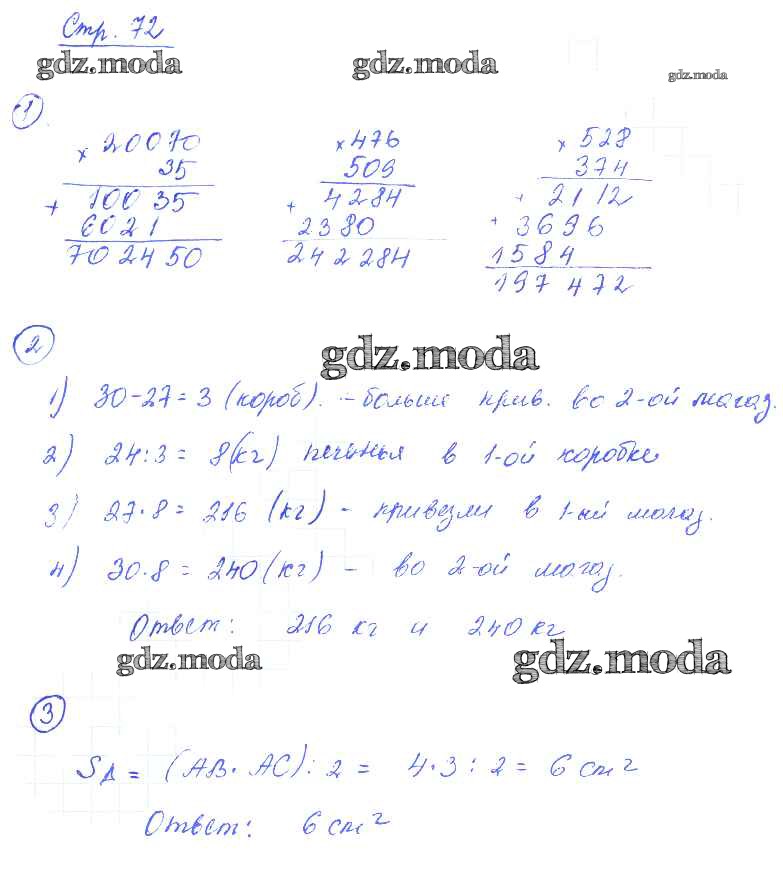 Стр. 72
gdz.moda gdz.moda gdz.moda
1
× 20070 × 476 × 528
35 509 374
+ 10035 + 4284 + 2112
6021 2380 + 3696
702450 242284 1584
197472
2
gdz.moda
1) 30-27=3 (короб). - больше прив. во 2-ой магаз.
2) 24:3 = 8(кг) печенья в 1-ой коробке
3) 27·8 = 216 (кг) - привезли в 1-ый магаз.
4) 30·8 = 240(кг) - во 2-ой магаз.
Ответ: 216 кг и 240 кг
gdz.moda gdz.moda
3
SΔ = (AB·AC):2 = 4·3:2 = 6 см²
Ответ: 6 см²